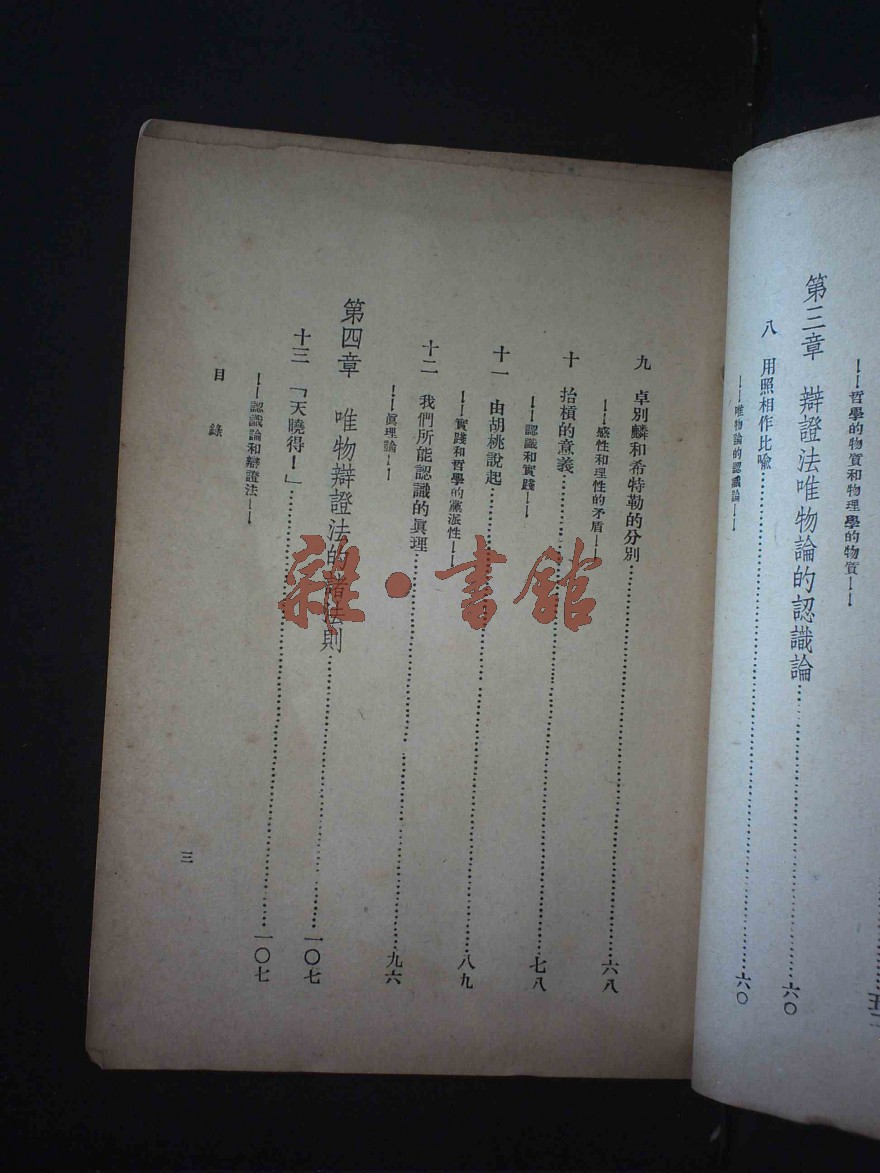 ——哲學的物質和物理學的物質——
五二
第三章 辯證法唯物論的認識論……六〇
八 用照相作比喩……六〇
——唯物論的認識論——
九 卓別麟和希特勒的分別……六八
——感性和理性的矛盾——
十 抬槓的意義……七八
——認識和實踐——
十一 由胡桃說起……八九
——實踐和哲學的黨派性——
十二 我們所能認識的眞理……九六
——眞理論——
第四章 唯物辯證法的諸法則……一〇七
十三 「天曉得！」……一〇七
——認識論和辯證法——
目錄
三
雜·書館